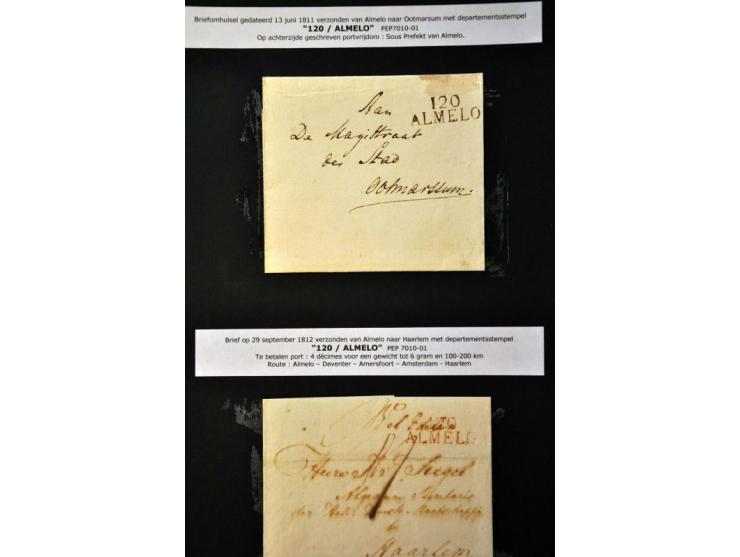 Briefomhulsel gedateerd 13 juni 1811 verzonden van Almelo naar Ootmarsum met departementsstempel
"120 / ALMELO" PEP7010-01
Op achterzijde geschreven portvrijdom : Sous Prefekt van Almelo.
120
ALMELO
Aan
De Magistraat
der Stad
Ootmarssum.
Brief op 29 september 1812 verzonden van Almelo naar Haarlem met departementsstempel
"120 / ALMELO" PEP 7010-01
Te betalen port : 4 décimes voor een gewicht tot 6 gram en 100-200 km
Route : Almelo – Deventer – Amersfoort – Amsterdam - Haarlem
Wel Edele
ALMELO
Algemeen
der
Haarlem